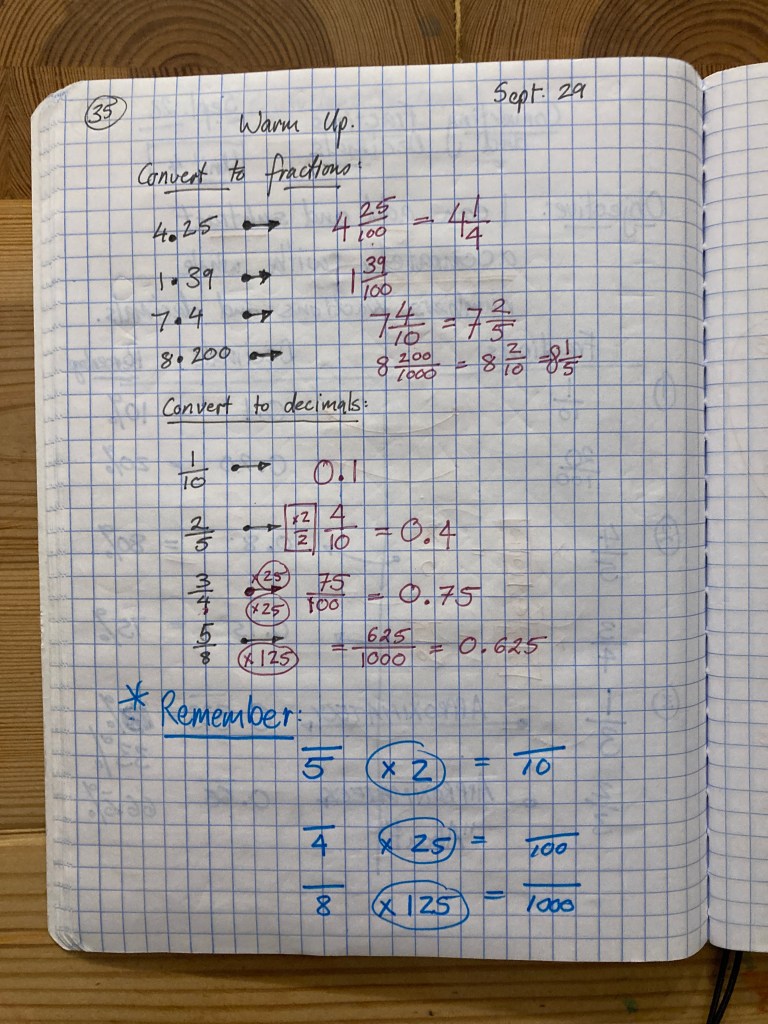 35 Sept. 29
Warm Up.
Convert to fractions:
4.25 → 4 25/100 = 4 1/4
1.39 → 1 39/100
7.4 → 7 4/10 = 7 2/5
8.200 → 8 200/1000 = 8 2/10 = 8 1/5
Convert to decimals:
1/10 → 0.1
2/5 → ×2/2 4/10 = 0.4
3/4 ×25 → ×25 75/100 = 0.75
5/8 → ×125 = 625/1000 = 0.625
* Remember:
/5 ×2 = /10
/4 ×25 = /100
/8 ×125 = /1000